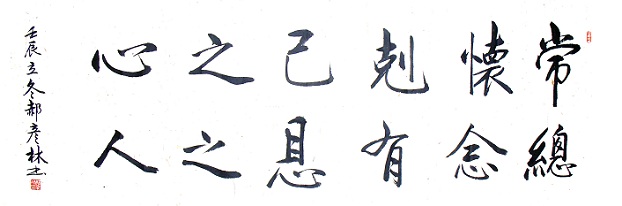 常懷剋己之心
總念有恩之人
壬辰立冬郝彦林书